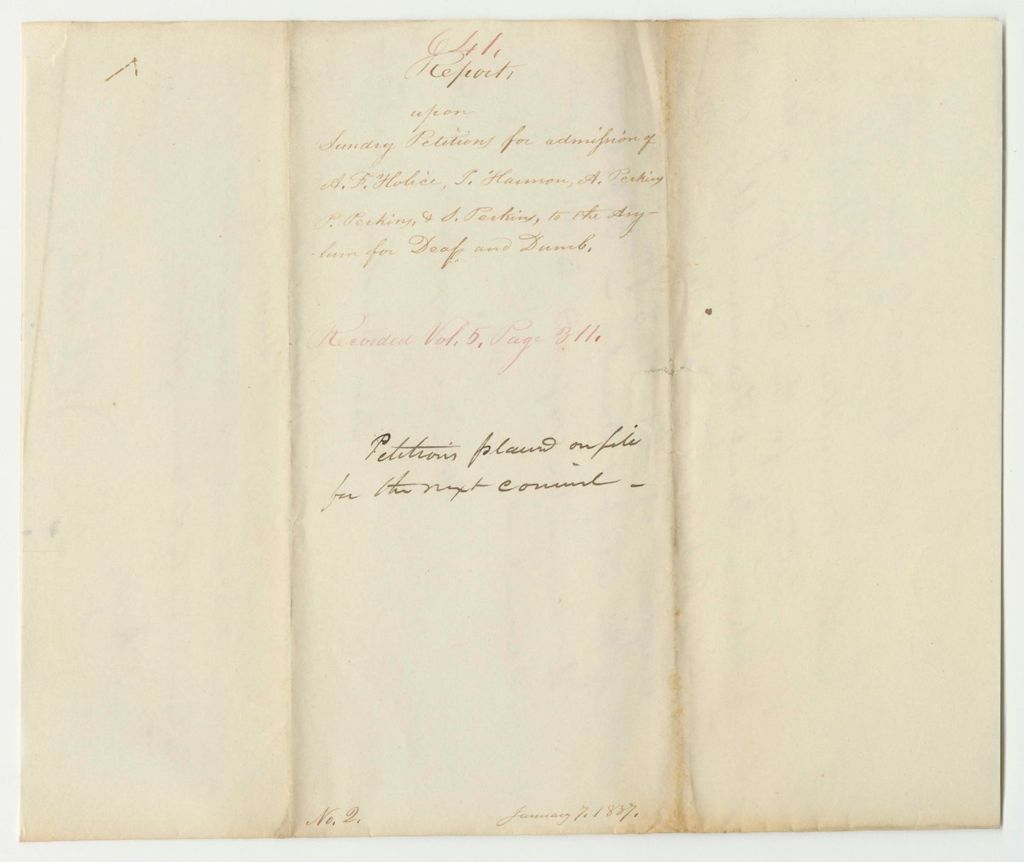 641.
Report,
upon
Sundry Petitions for admission of
A. F. Holice, T. Harmon, A. Perkins
P. Perkins, & S. Perkins, to the Asy-
-lum for Deaf and Dumb.
Recorded Vol. 5, Page 311.
Petitions placed on file
for the next council -
No. 2.
January 7, 1837.